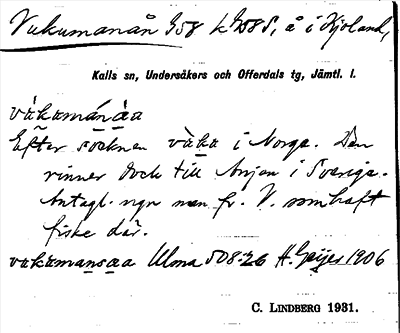 Vukumanån G58 k G58 S, å i Kjoland,
Kalls sn, Undersåkers och Offerdals tg, Jämtl. l.
vùkᴀmánᴀ́a
Efter socknen vùkᴀ i Norge. Den
rinner dock till Anjan i Sverige.
Antagl. ngn man fr. V. som haft
fiske där.
vukᴀmansᴀa Ulma 508:26 H. Geijer 1906
C. LINDBERG 1931.